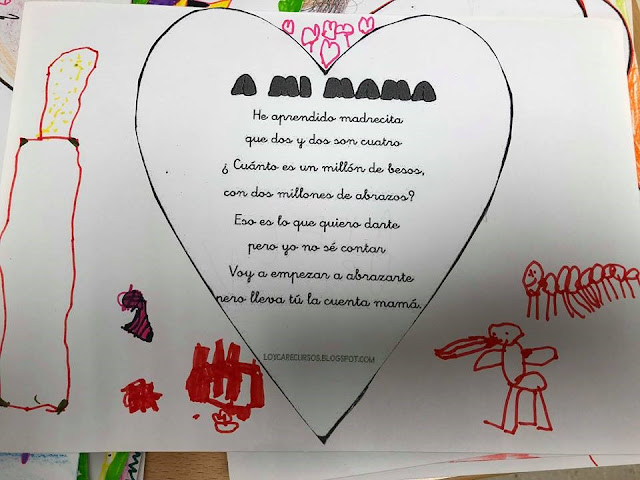 A MI MAMA
He aprendido madrecita
que dos y dos son cuatro
¿ Cuánto es un millón de besos,
con dos millones de abrazos?
Eso es lo que quiero darte
pero yo no sé contar
Voy a empezar a abrazarte
pero lleva tú la cuenta mamá.
LOYCARECURSOS.BLOGSPOT.COM